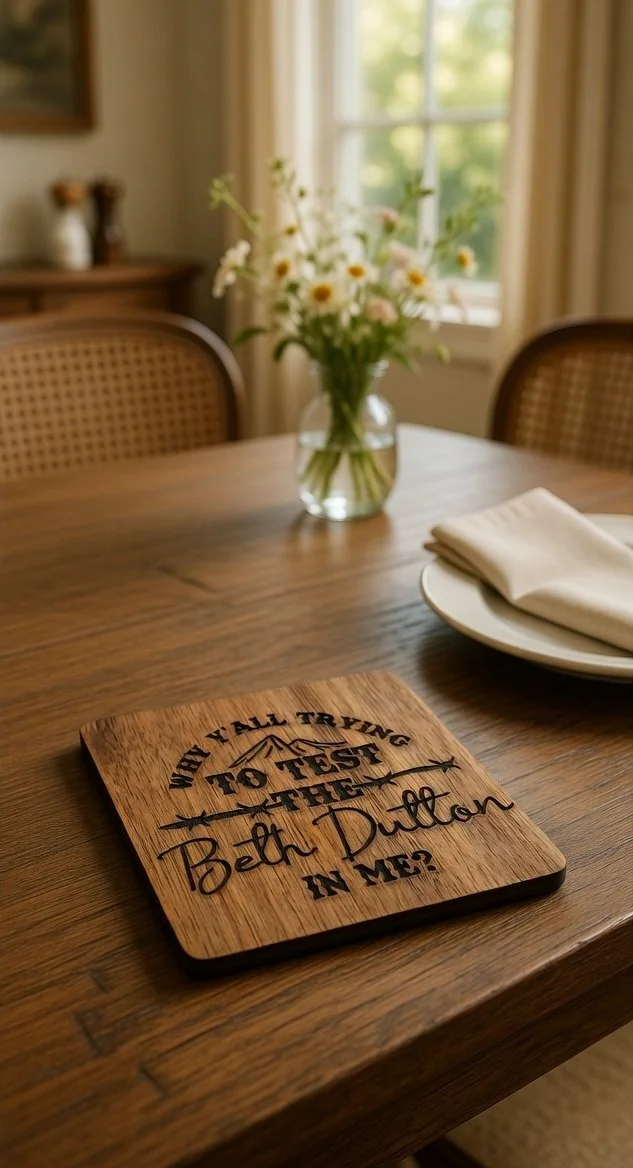 WHY Y'ALL TRYING
TO TEST
THE
Beth Dutton
IN ME?